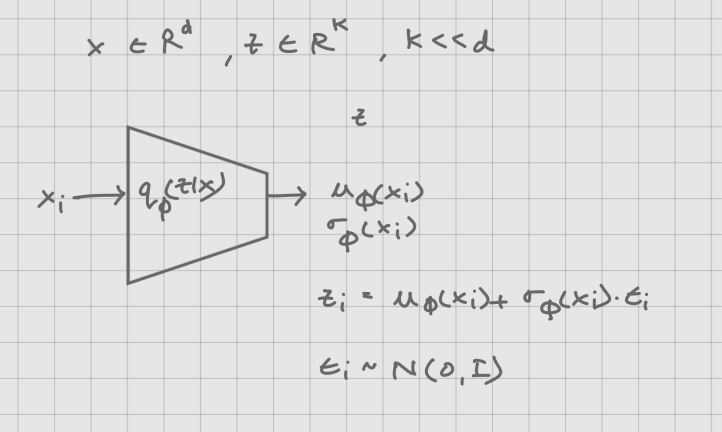 x ∈ R^d , z ∈ R^k , k << d
z
x_i → q_φ(z|x) → μ_φ(x_i)
σ_φ(x_i)
z_i = μ_φ(x_i) + σ_φ(x_i) · ε_i
ε_i ~ N(0, I)